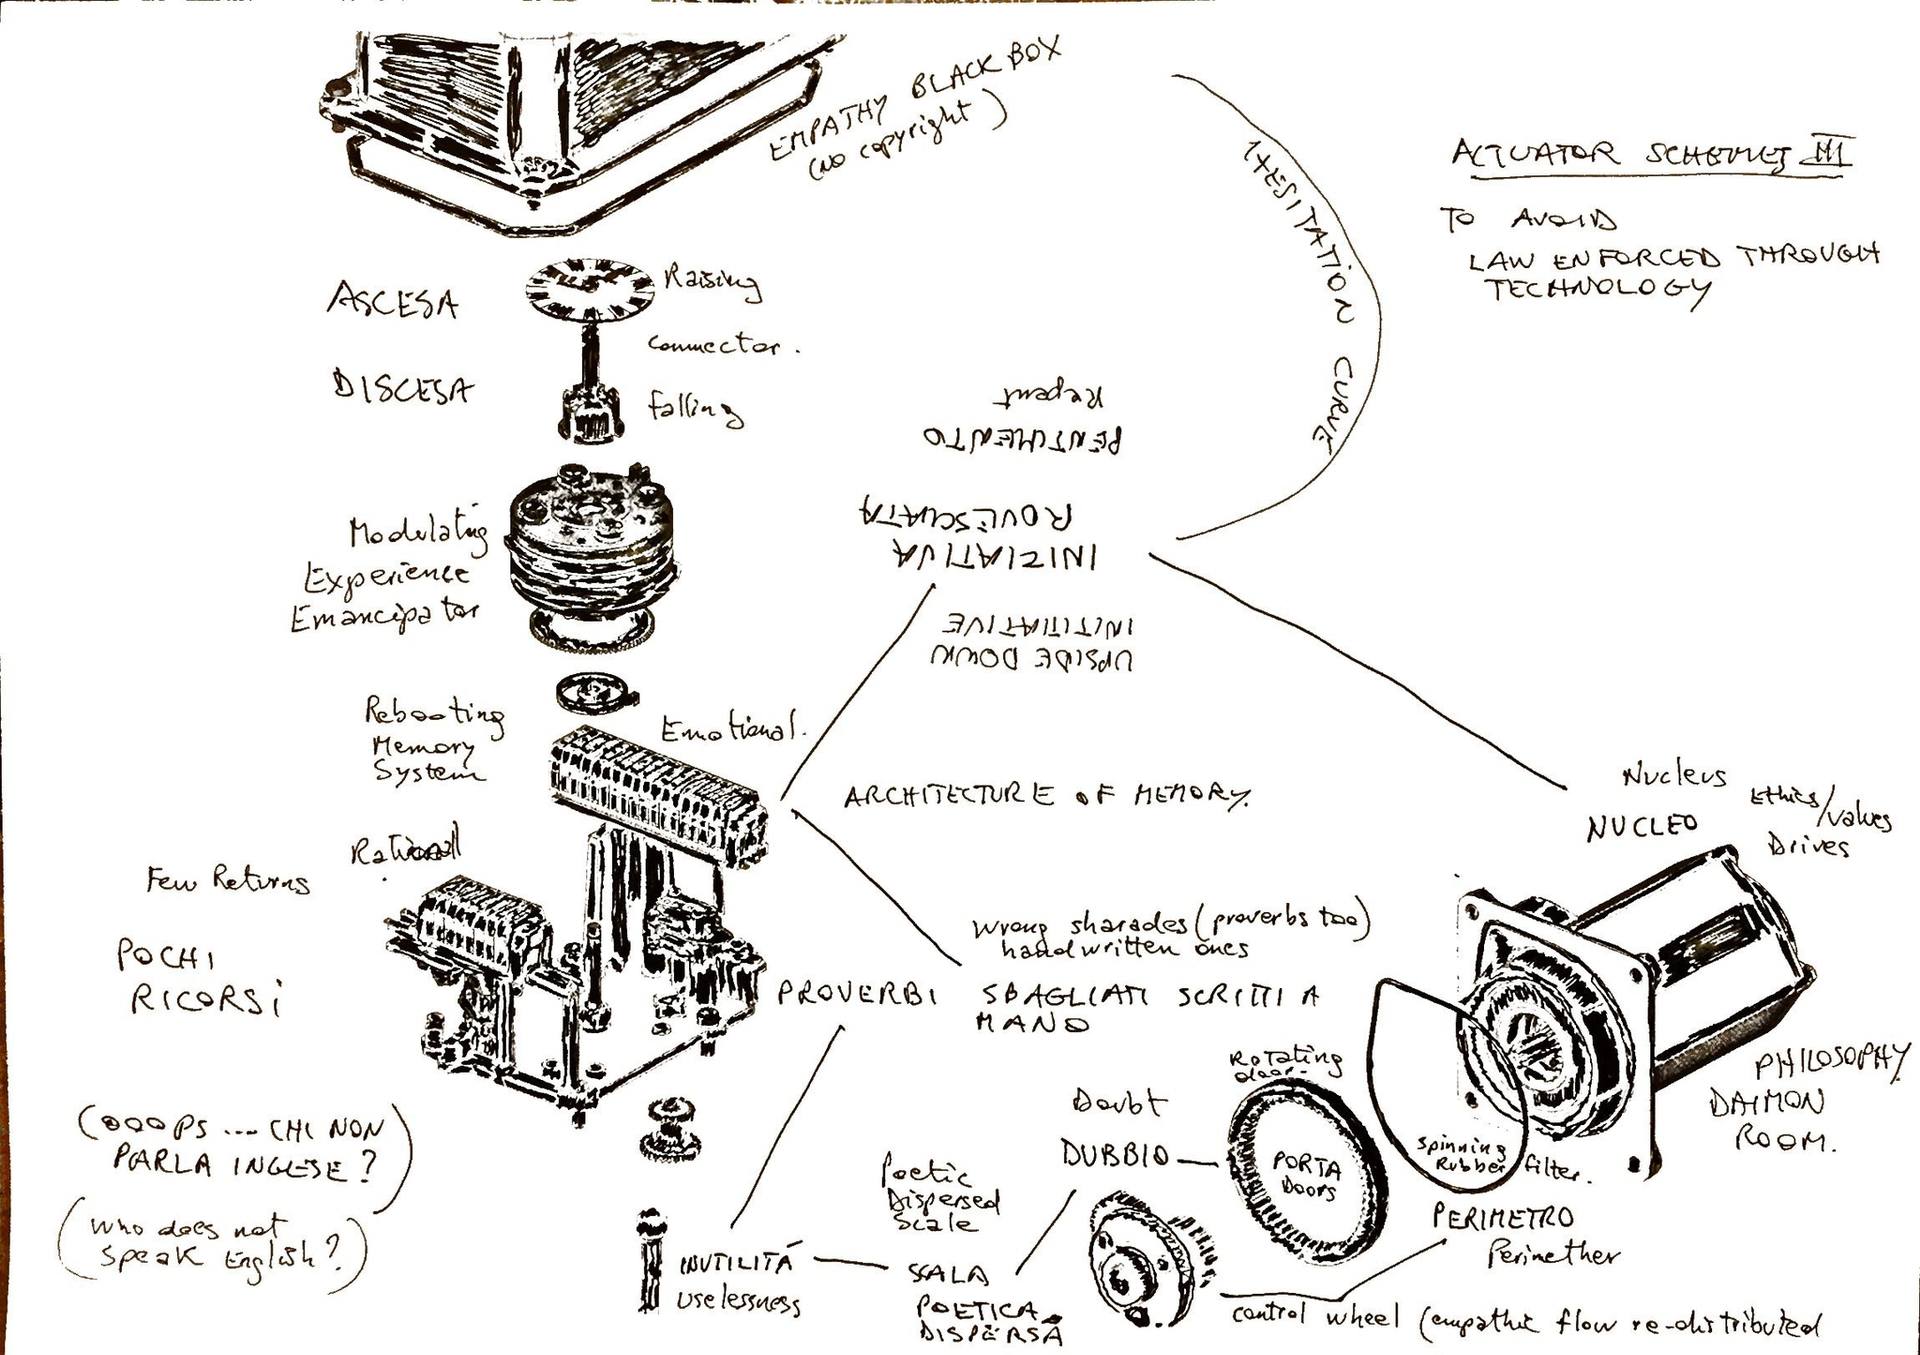 EMPATHY BLACK BOX
(No copyright)
HESITATION CURVE
ACTUATOR SCHEMES III
TO AVOID
LAW ENFORCED THROUGH
TECHNOLOGY
ASCESA
Raising
connector.
DISCESA
falling
Repent
PENTIMENTO
ROVESCIATA
INIZIATIVA
INITIATIVE
UPSIDE DOWN
Modulating
Experience
Emancipator
Rebooting
Memory
System
Emotional.
ARCHITECTURE OF MEMORY.
Nucleus
NUCLEO
Ethics/values
Drives
Rational
Few Returns
POCHI
RICORSi
Wrong sharades (proverbs too)
handwritten ones
PROVERBI SBAGLIATI SCRITTI A
MANO
PHILOSOPHY
DAIMON
ROOM.
Rotating
door.
PORTA
DOORS
Doubt
DUBBIO
Spinning
Rubber filter.
PERIMETRO
Perimether
(OOOPS ... CHI NON
PARLA INGLESE?)
(Who does not
speak English?)
Poetic
Dispersed
Scale
INUTILITÁ
uselessness
SCALA
POETICA
DISPERSA
control wheel (empathic flow re-distributed